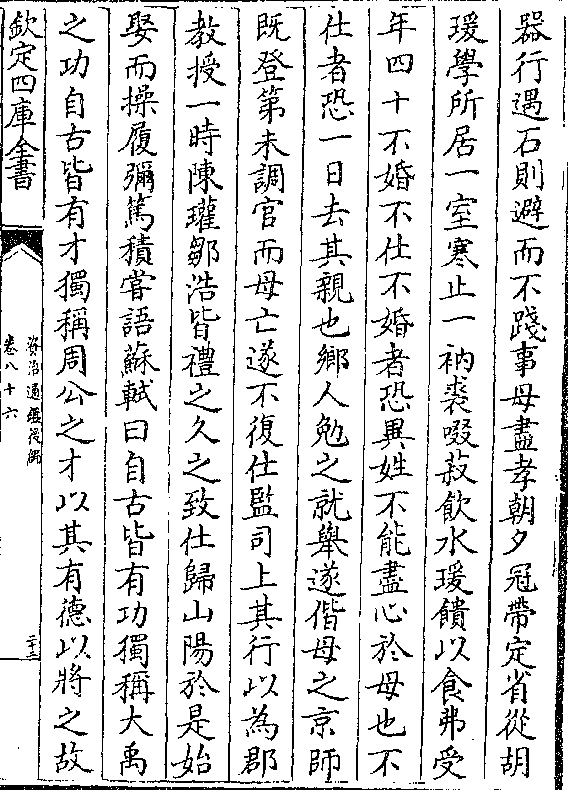 器行遇石則避而不踐事母盡孝朝夕冠帶定省從胡
瑗學所居一室寒止一衲裘啜菽飲水瑗饋以食弗受
年四十不婚不仕不婚者恐異姓不能盡心於母也不
仕者恐一日去其親也鄉人勉之就舉遂偕母之京師
既登第未調官而母亡遂不復仕監司上其行以為郡
教授一時陳瓘鄒浩皆禮之久之致仕歸山陽於是始
娶而操履彌篤積嘗語蘇軾曰自古皆有功獨稱大禹
之功自古皆有才獨稱周公之才以其有德以將之故
欽定四庫全書
資治通鑑後編
卷八十六
二十三